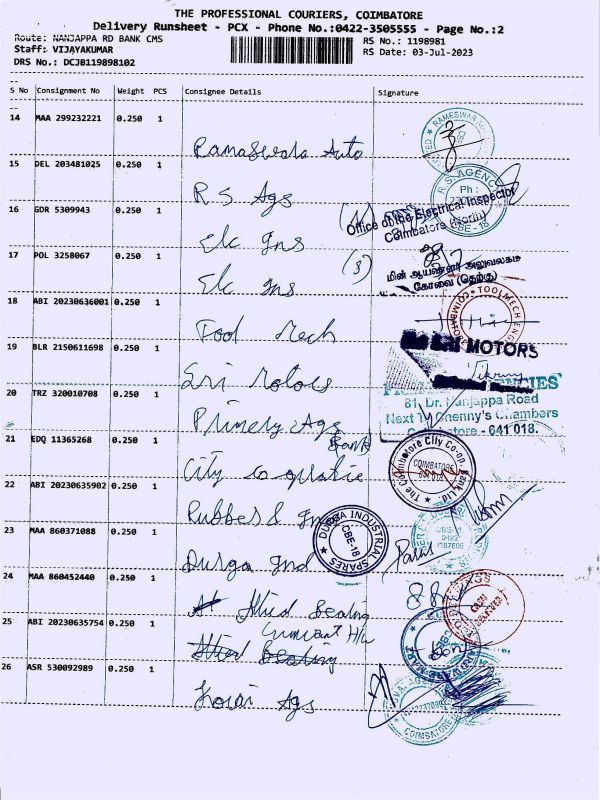 THE PROFESSIONAL COURIERS, COIMBATORE
Delivery Runsheet - PCX - Phone No.:0422-3505555 - Page No.:2
Route: NANJAPPA RD BANK CMS
RS No.: 1198981
Staff: VIJAYAKUMAR
RS Date: 03-Jul-2023
DRS No.: DCJB119898102
S No Consignment No Weight PCS Consignee Details Signature
14 MAA 299232221 0.250 1
Ramaswara Auto
RAMESWARA
15 DEL 203481025 0.250 1
R S Ags
R.S. AGENC
Ph :
CBE - 18
16 GDR 5309943 0.250 1
Elc Ins
Office of the Electrical Inspector
Coimbatore (North)
17 POL 3258067 0.250 1
(3)
Elc Ins
மின் ஆய்வாளர் அலுவலகம்
கோவை (தெற்கு)
18 ABI 20230636001 0.250 1
Tool Mech
TOOLMECH ENG
COIMBATORE
19 BLR 2150611698 0.250 1
Sri Motors
SRI MOTORS
20 TRZ 320010708 0.250 1
Primery Ags
81, Dr. Nanjappa Road
Next To Chenny's Chambers
Coimbatore - 641 018.
21 EDQ 11365268 0.250 1
Bank
City co opratie
The Coimbatore City Co-op Bank Ltd
COIMBATORE
22 ABI 20230635902 0.250 1
Rubber &
23 MAA 860371088 0.250 1
Durga Ind
DURGA INDUSTRIAL SPARES
CBE-18
24 MAA 860452440 0.250 1
Allied Bearing
25 ABI 20230635754 0.250 1
H/w
Allied Bearing
26 ASR 530092989 0.250 1
Kovai Ags
COIMBATORE